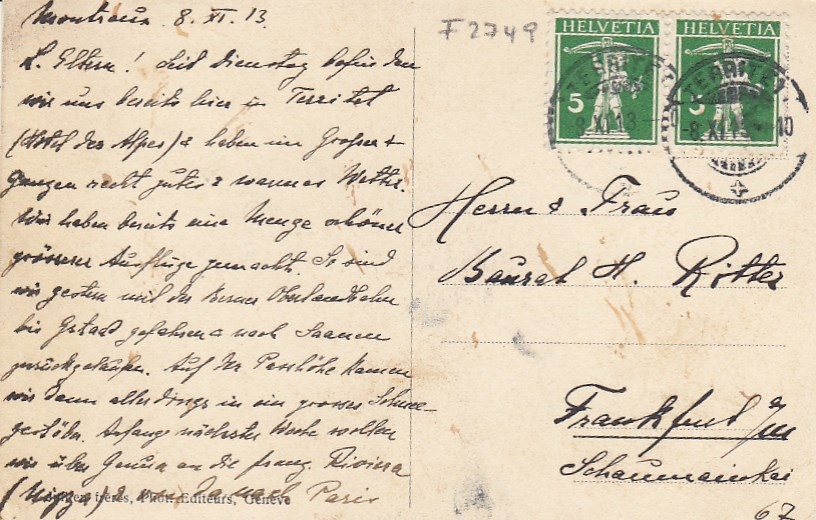 Montreux 8. XI. 13.
L. Eltern! Seit Dienstag befinden
wir uns bereits hier in Territet
(Hotel des Alpes) & haben im Grossen &
Ganzen recht gutes & warmes Wetter.
Wir haben bereits eine Menge schöner
grösserer Ausflüge gemacht. So sind
wir gestern mit der Berner Oberlandbahn
bis Gstaad gefahren & nach Saanen
zurückgelaufen. Auf der Passhöhe kamen
wir dann allerdings in ein grosses Schnee-
gestöber. Anfangs nächster Woche wollen
wir über Genua an die franz. Riviera
(Nizza) & danach Paris
frères, Phot. Editeurs, Genève
F2749
HELVETIA
HELVETIA
5
5
TERRITET
8.XI.13
TERRITET
-8.XI.13 10
Herrn & Frau
Baurat H. Ritter
Frankfurt a/M
Schaumainkai
67